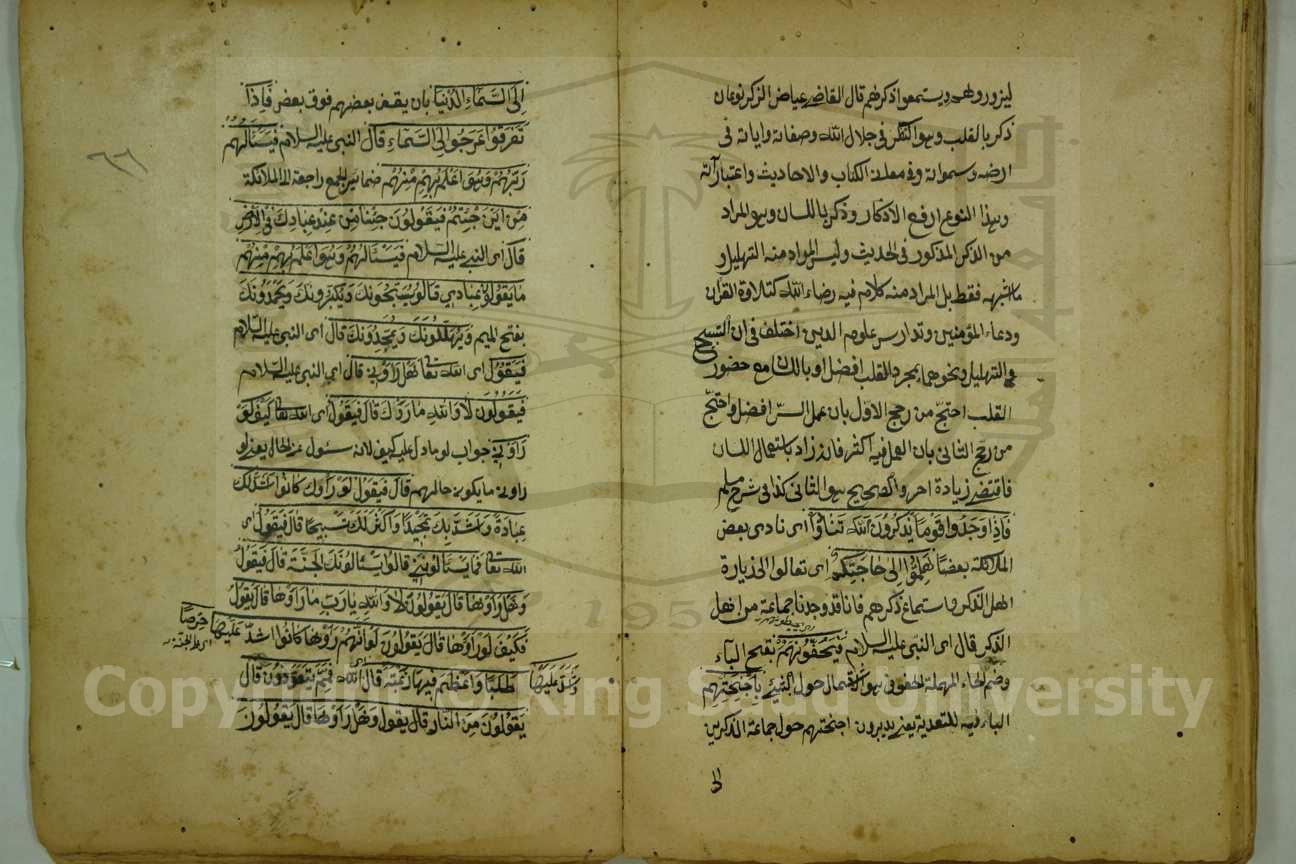 ليزورولهم ويستمعوا ذكرهم قال القاضي عياض الذكر نوعان
ذكر بالقلب وهو التفكر في جلال الله وصفاته واياته في
ارضه وسمواته وفي معانى الكتاب والاحاديث واعتبار آته
وهذا النوع ارفع الاذكار وذكر باللسان وهو المراد
من الذكر المذكور في الحديث وليس المراد منه التهليل و
ما اشبهه فقط بل المراد منه كلام فيه رضاء الله كتلاوة القرآن
ودعاء المؤمنين وتدارس علوم الدين اختلف في ان التسبيح
والتهليل ونحوهما بمجرد القلب افضل او باللسان مع حضور
القلب احتجّ من رجح الاول بان عمل السرّ افضل واحتجّ
من رجّح الثاني بان العمل فيه اكثر فان زاد باستعمال اللسان
فاقتضى زيادة اجر والصحيح هو الثاني كذا في شرح مسلم
فَاِذَا وَجَدُوا قَوْمًا يَذْكُرُونَ اللّٰهَ تَنَادَوْا اى نادى بعض
الملائكة بعضًا هَلُمُّوا اِلَى حَاجَتِكُمْ اى تعالوا الى زيارة
اهل الذكر واستماع ذكرهم فانا قد وجدنا جماعة من اهل
الذكر قال اى النبي عليه السلام فَيَحُفُّونَهُمْ بفتح الياء
وضم الحاء المهملة الحفوف هو الاشتمال حول الشيء بِاَجْنِحَتِهِم
الباء فيه للتعدية يعني يديرون اجنحتهم حول جماعة الذاكرين
الى
٦٦
اِلَى السَّمَاءِ الدُّنْيَا بان يقف بعضهم فوق بعض فَاِذَا
تَفَرَّقُوا عَرَجُوا اِلَى السَّمَاءِ قَالَ النبي عليه السلام فَيَسْئَالُهُمْ
رَبُّهُمْ وَهُوَ اَعْلَمُ بِهِمْ مِنْهُمْ ضمائر الجمع راجعة الى الملائكة
مِنْ اَيْنَ جِئْتُمْ فَيَقُولُونَ جِئْنَا مِنْ عِنْدِ عِبَادِكَ فِي الْاَرْضِ
قَالَ اى النبي عليه السلام فَيَسْئَالُهُمْ وَهُوَ اَعْلَمُ بِهِمْ مِنْهُمْ
مَا يَقُولُ عِبَادِي قَالُوا يُسَبِّحُونَكَ وَيُكَبِّرُونَكَ وَيَحْمَدُونَكَ
بفتح الميم وَيُهَلِّلُونَكَ وَيُمَجِّدُونَكَ قال اى النبي عليه السّلام
فَيَقُولُ اى الله تعا هَلْ رَاَوْنِي قال اي النبي عليه السّلام
فَيَقُولُونَ لَا وَاللّٰهِ مَا رَاَوْكَ قَالَ فَيَقُولُ اى الله تعا كَيْفَ لَوْ
رَاَوْنِي جواب لو ما دل عليه كيف لانه سئول عن الحال يعنى لو
راونى ما يكون حالهم قَالَ فَيَقُولُ لَوْ رَاَوْكَ كَانُوا اَشَدَّ لَكَ
عِبَادَةً وَاَشَدَّ لَكَ تَمْجِيدًا وَاَكْثَرَ لَكَ تَسْبِيحًا قَالَ فَيَقُولُ اى
الله تعا فَمَا يَسْئَالُونَنِي قَالُوا يَسْئَالُونَكَ الْجَنَّةَ قَالَ فَيَقُولُ
وَهَلْ رَاَوْهَا قَالَ يَقُولُونَ لَا وَاللّٰهِ يَارَبِّ مَا رَاَوْهَا قَالَ يَقُولُ
فَكَيْفَ لَوْ رَاَوْهَا قَالَ يَقُولُونَ لَوْ اَنَّهُمْ رَاَوْهَا كَانُوا اَشَدَّ عَلَيْهَا حِرْصًا
اى على الجنة
وَاَشَدَّ لَهَا
طَلَبًا وَاَعْظَمَ فِيهَا رَغْبَةً قَالَ اى الله فَمِمَّ يَتَعَوَّذُونَ قَالَ
يَقُولُونَ مِنَ النَّارِ قَالَ يَقُولُ وَهَلْ رَاَوْهَا قَالَ يَقُولُونَ
1957
Copyright © King Saud University